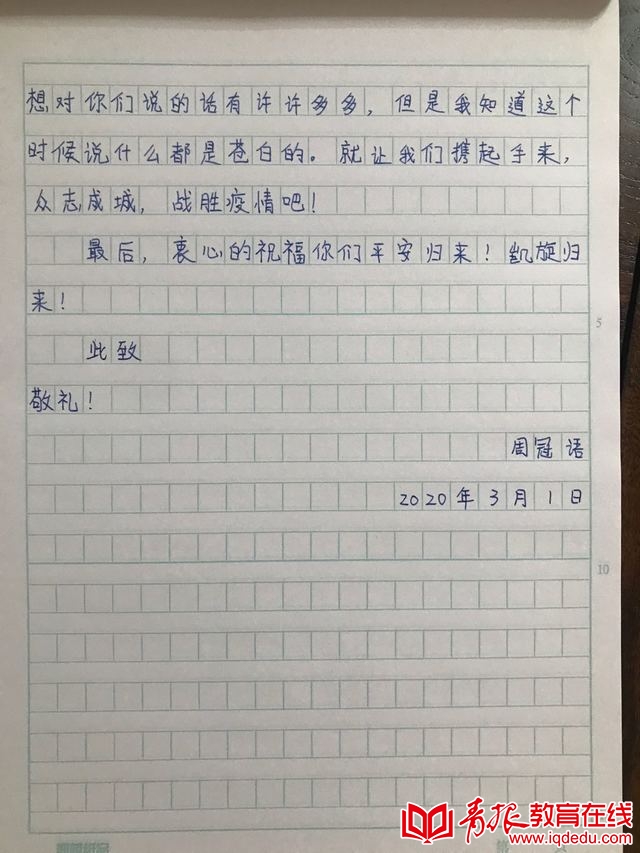 想对你们说的话有许许多多，但是我知道这个
时候说什么都是苍白的。就让我们携起手来，
众志成城，战胜疫情吧！
最后，衷心的祝福你们平安归来！凯旋归
来！
5
此致
敬礼！
周冠语
2020年3月1日
10
青报教育在线
www.iqdedu.com